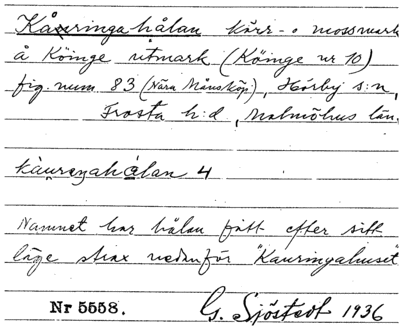 Kåuringahålan kärr- o mossmark
å Köinge utmark (Köinge nr 10)
fig. num. 83 (Nära Månsköp), Hörby s:n,
Frosta h:d, Malmöhus län.
kåurengahålan 4
Namnet har hålan fått efter sitt
läge strax nedanför "Kauringahuset"
Nr 5558.
G. Sjöstedt 1936